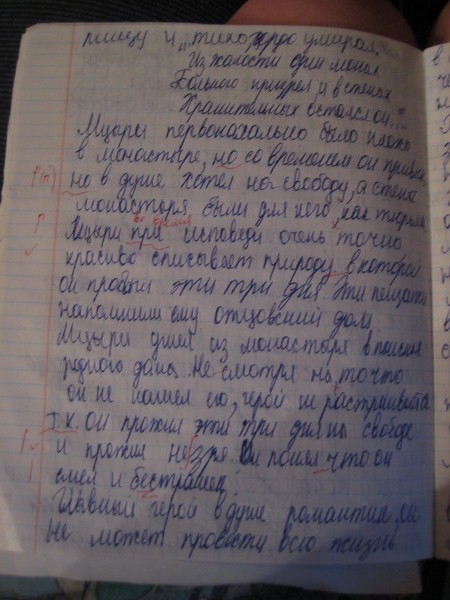 пищу и „тихо, гордо умирал,
Из жалости один монах
Больного призрел и в стенах
Хранительных остался он..."
Мцыри первоначально было плохо
в монастыре, но со временем он привык,
но в душе хотел на свободу, а стены
монастыря были для него, как тюрьма.
Мцыри при во время исповеди очень точно
красиво описывает природу в которой
он провёл эти три дня. Эти пейзажи
напомнили ему отцовский дом.
Мцыри ушёл из монастыря в поисках
родного дома. Не смотря на то что
он не нашёл его, герой не расстраивается
т.к. он прожил эти три дня на свободе
и прожил не зря. Он понял что он
смел и бесстрашен.
Главный герой в душе романтик, он
не может провести всю жизнь